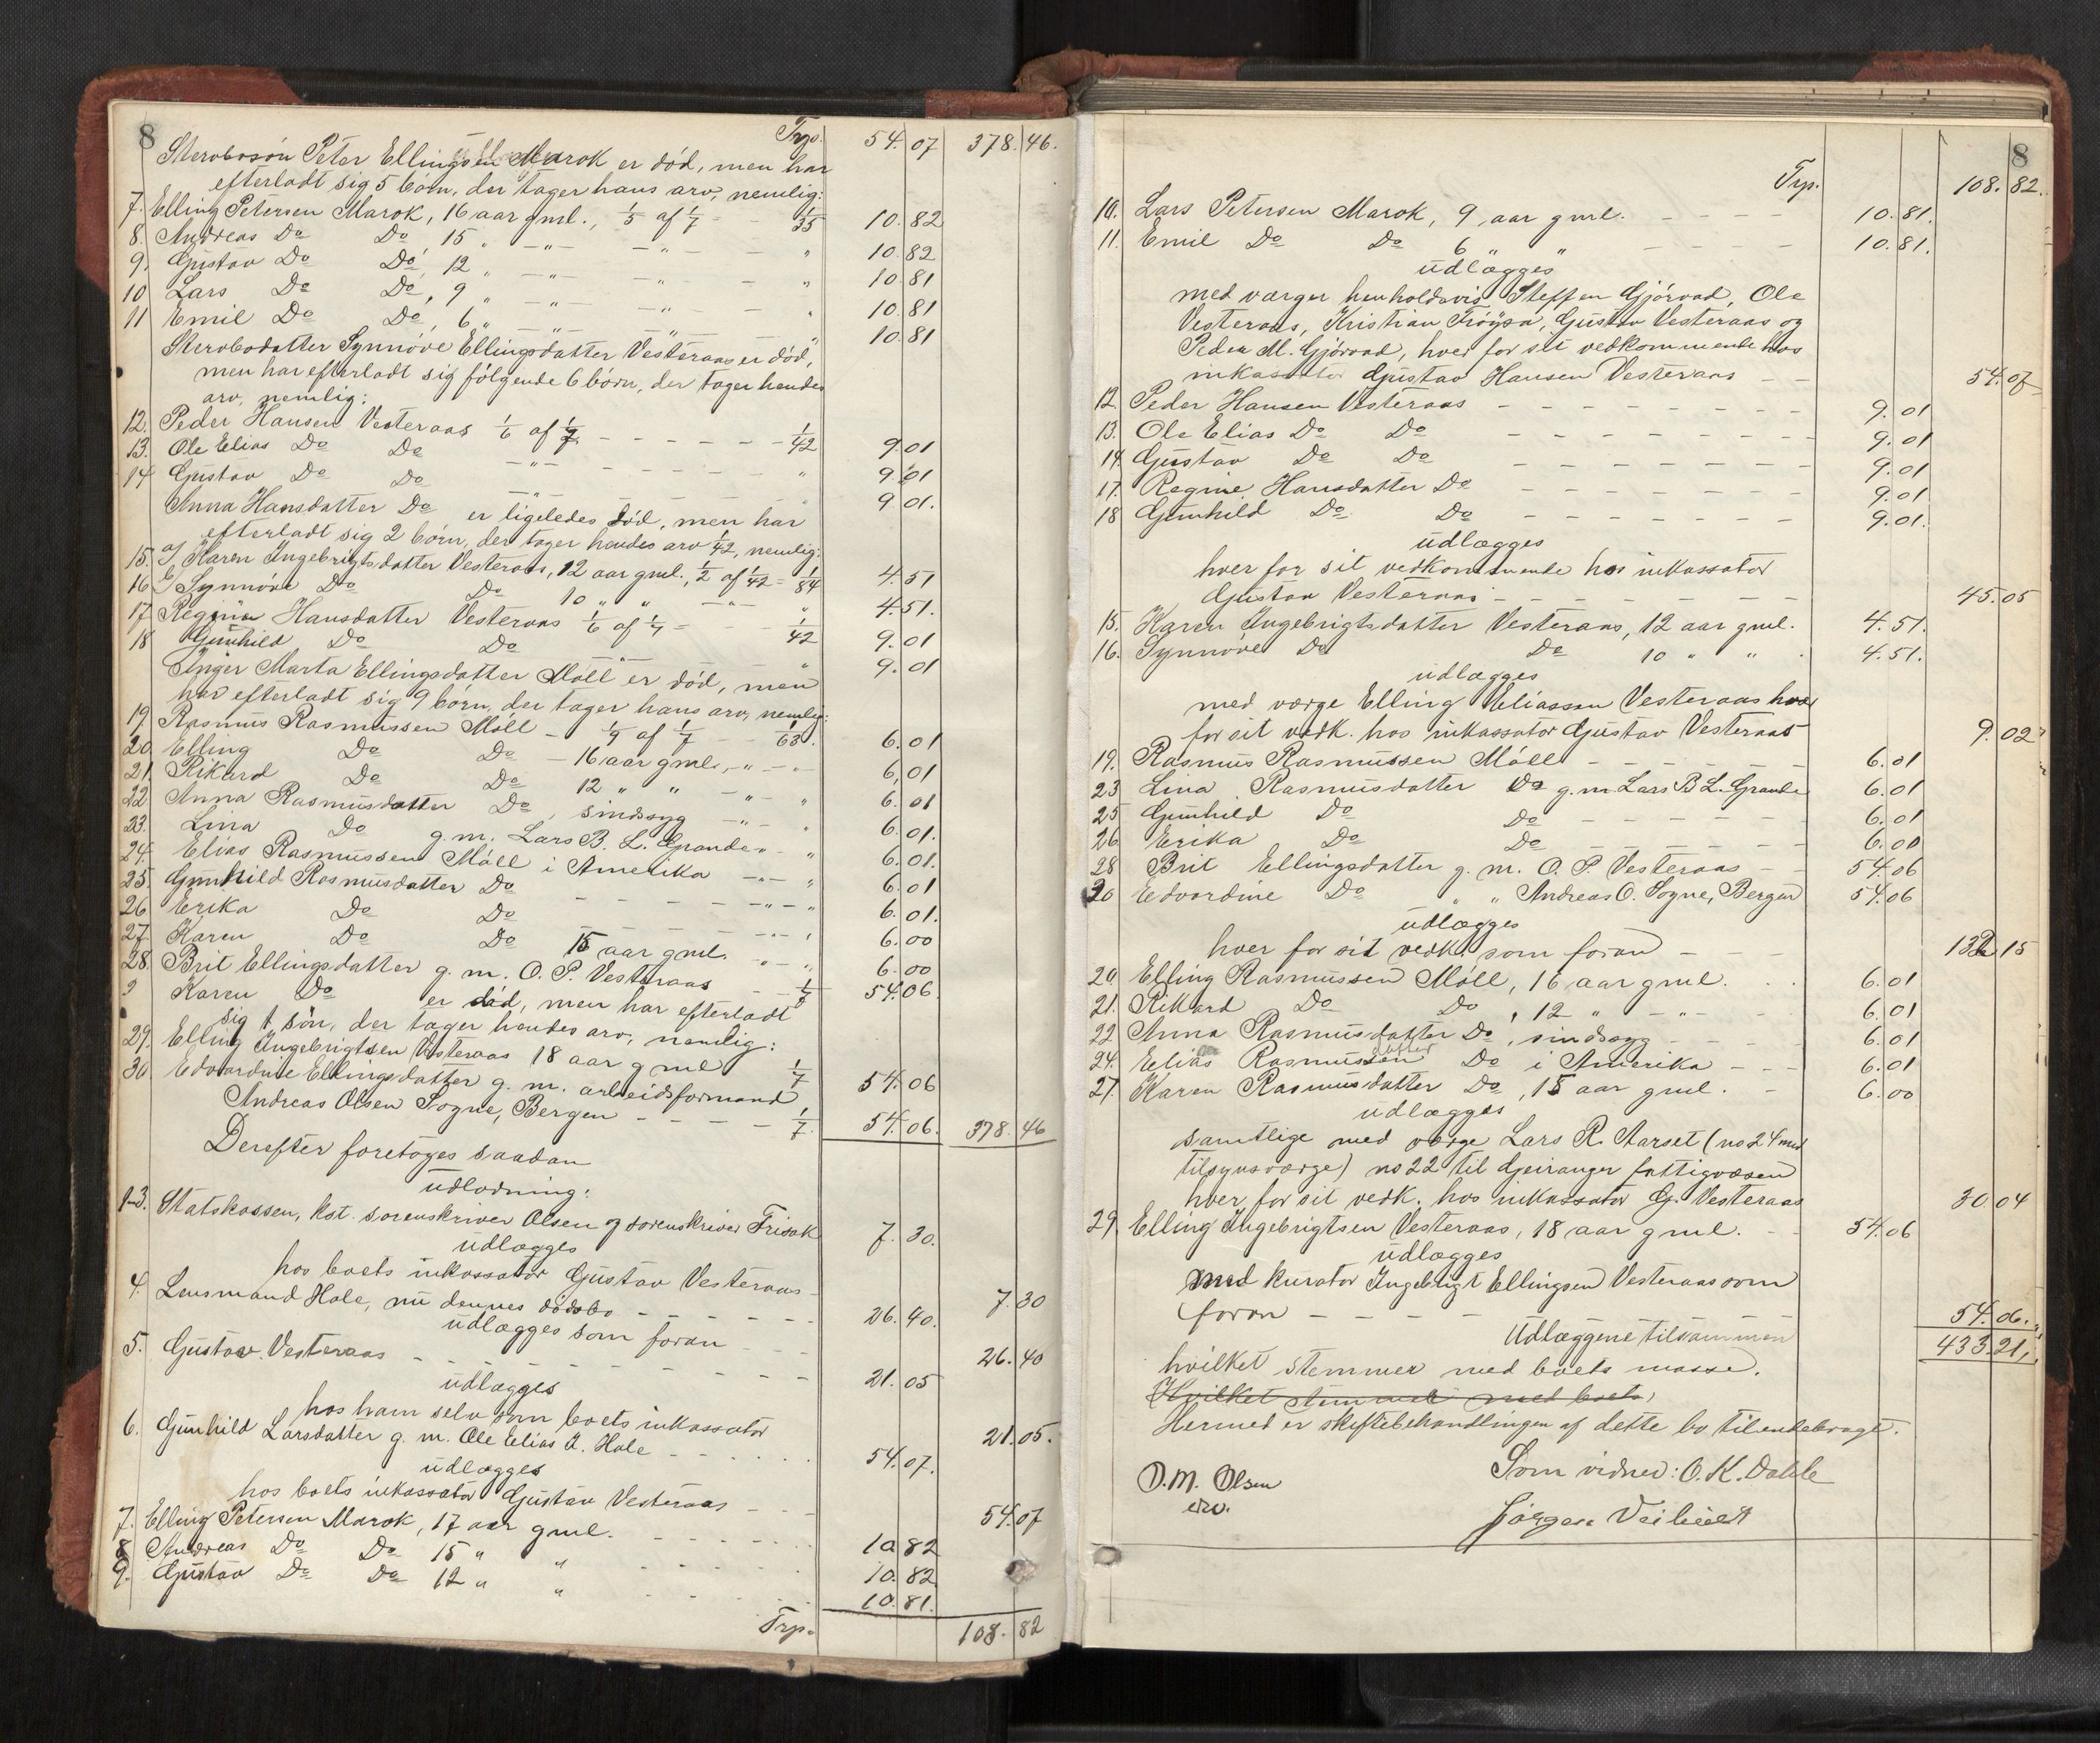 8
Trp. 54.07 378.46.
Stervbosøn Peter Ellingsen Marok er død, men har
efterladt sig 5 børn, der tager hans arv, nemlig:
7. Elling Petersen Marok, 16 aar gml., 1/5 af 1/7 - 1/35 10.82
8. Andreas Do Do 15 " -"- -"- " 10.82
9. Gustav Do Do, 12 " -"- " - " 10.81
10 Lars Do Do, 9 " -"- -"- - " 10.81
11 Emil Do Do, 6 " -"- -"- " 10.81
Stervbodatter Synnøve Ellingsdatter Vesteraas er død,
men har efterladt sig følgende 6 børn, der tager hendes
arv, nemlig:
12. Peder Hansen Vesteraas 1/6 af 1/7 - - - - - - 1/42 9.01
13. Ole Elias Do Do -"- - - - - - " 9.01
14 Gustav Do Do -"- " 9.01.
Anna Hansdatter Do er ligeledes død, men har
efterladt sig 2 børn, der tager hendes arv 1/42, nemlig:
15. Karen Ingebrigtsdatter Vesteraas, 12 aar gml., 1/2 af 1/42 = 1/84 4.51
16 Synnøve Do Do 10 " " -"- " 4.51.
17 Regine Hansdatter Vesteraas 1/6 af 1/7 = - - 1/42 9.01
18 Gunhild Do Do -"- - " 9.01
Inger Marta Ellingsdatter Møll er død, men
har efterladt sig 9 børn, der tager hans arv, nemlig:
19. Rasmus Rasmussen Møll - 1/9 af 1/7 - 1/63. 6.01
20. Elling Do Do - 16 aar gml., -"- -"- 6.01
21. Rikard Do Do 12 " " -"- " 6.01
22 Anna Rasmusdatter Do, sindssyg -"- " 6.01.
23. Lina Do g.m. Lars B. L. Grande -"- " 6.01.
24. Elias Rasmussen Møll i Amerika -"- " 6.01
25. Gunhild Rasmusdatter Do - - - - - -"- " 6.01.
26 Erika Do Do - - - -"- " 6.00
27. Karen Do Do 15 aar gml. -"- " 6.00
28. Brit Ellingsdatter g. m. O. P. Vesteraas - - 1/7 54.06.
Karen Do er død, men har efterladt
sig 1 søn, der tager hendes arv, nemlig:
29. Elling Ingebrigtsen Vesteraas 18 aar gml 1/7 54.06
30 Edvardine Ellingsdatter g. m. arbeidsformand
Andreas Olsen Sogne, Bergen - - - - - 1/7. 54.06. 378.46
Derefter foretoges saadan
udlodning:
1-3. Statskassen, kst. sorenskriver Olsen og sorenskriver Frisak 7.30.
udlægges
hos boets inkassator Gustav Vesteraas - 7.30
4. Lensmand Hole, nu dennes dødsbo - - - - - - 26.40.
udlægges som foran - - - 26.40
5. Gustav Vesteraas - - - - - - - - - 21.05
udlægges
hos ham selv som boets inkassator 21.05.
6. Gunhild Larsdatter g. m. Ole Elias I. Hole - - - - - 54.07.
udlægges
hos boets inkassator Gustav Vesteraas - - 54.07
7. Elling Petersen Marok, 17 aar gml. - - - - - - 10.82
8 Andreas Do Do 15 " " - - - - 10.82
9. Gustav Do Do 12 " " - - - - 10.81.
Trp. 108.82
8
Trp. 108.82.
10. Lars Petersen Marok, 9 aar gml. - - - - 10.81.
11. Emil Do Do 6 " " - - - - 10.81.
udlægges
med værger henholdsvis Steffen Gjørvad, Ole
Vesteraas, Kristian Frøysa, Gustav Vesteraas og
Peder M. Gjørvad, hver for sit vedkommende hos
inkassator Gustav Hansen Vesteraas - - 54.07
12. Peder Hansen Vesteraas - - - - - - - - 9.01
13. Ole Elias Do Do - - - - - - - - 9.01
14 Gustav Do Do - - - - - - - - 9.01
17. Regine Hansdatter Do - - - - - - - 9.01
18 Gunhild Do Do - - - - - - - 9.01.
udlægges
hver for sit vedkommende hos inkassator
Gustav Vesteraas - - - - - - - - 45.05
15. Karen Ingebrigtsdatter Vesteraas, 12 aar gml. 4.51.
16. Synnøve Do Do 10 " " . 4.51.
udlægges
med værge Elling Eliassen Vesteraas hver
for sit vedk. hos inkassator Gustav Vesteraas 9.02
19. Rasmus Rasmussen Møll - - - - - - 6.01
23 Lina Rasmusdatter Do g.m. Lars B L. Grande 6.01
25 Gunhild Do Do - - - - - - 6.01
26 Erika Do Do - - - - - - 6.00
28 Brit Ellingsdatter g. m. O. P. Vesteraas - - 54.06
30 Edvardine Do " " Andreas O. Sogne, Bergen 54.06
udlægges
hver for sit vedk. som foran - - - 132.15
20. Elling Rasmussen Møll, 16 aar gml. . . 6.01
21. Rikard Do Do, 12 " -"- - 6.01
22 Anna Rasmusdatter Do, sindssyg - - - - 6.01
24. Elias Rasmussen Do i Amerika - - - 6.01
27. Karen Rasmusdatter Do, 15 aar gml. - 6.00
udlægges
samtlige med værge Lars R. Aarset (no 24 med
tilsynsværge) no 22 til Geiranger fattigvæsen
hver for sit vedk. hos inkassator G. Vesteraas 30.04
29. Elling Ingebrigtsen Vesteraas, 18 aar gml. - - 54.06
udlægges
med kurator Ingebrigt Ellingsen Vesteraas som
foran - - - - 54.06.
Udlæggene tilsammen 433.21,
hvilket stemmer med boets masse.
Hvilket stemmer med boets,
Hermed er skiftebehandlingen af dette bo tilendebragt.
O. M. Olsen Som vidner: O. K. Dahle